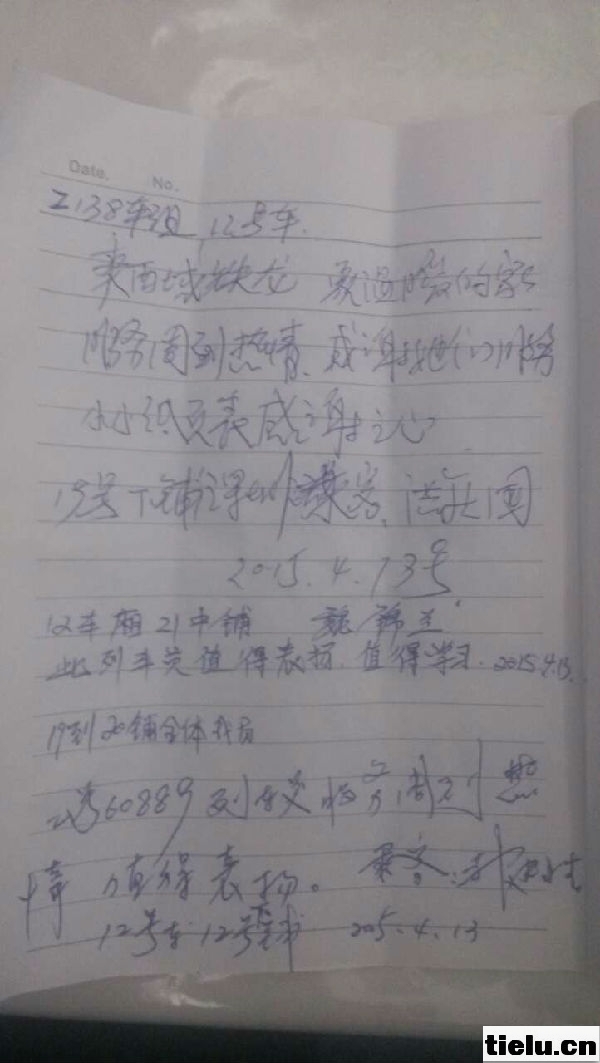 Date. No.
Z138车组 12号车.
乘西域铁龙 温暖的家
服务周到热情、感谢她们的服务
小小纸页表感谢之心
下铺 乘客
2015.4.13号
12车厢21中铺 魏
此列车员值得表扬. 值得学习. 2015.4.13.
19到20铺全体
60889列 周到 热
情 值得表扬。 乘客:
12号车12号 2015.4.13
tielu.cn